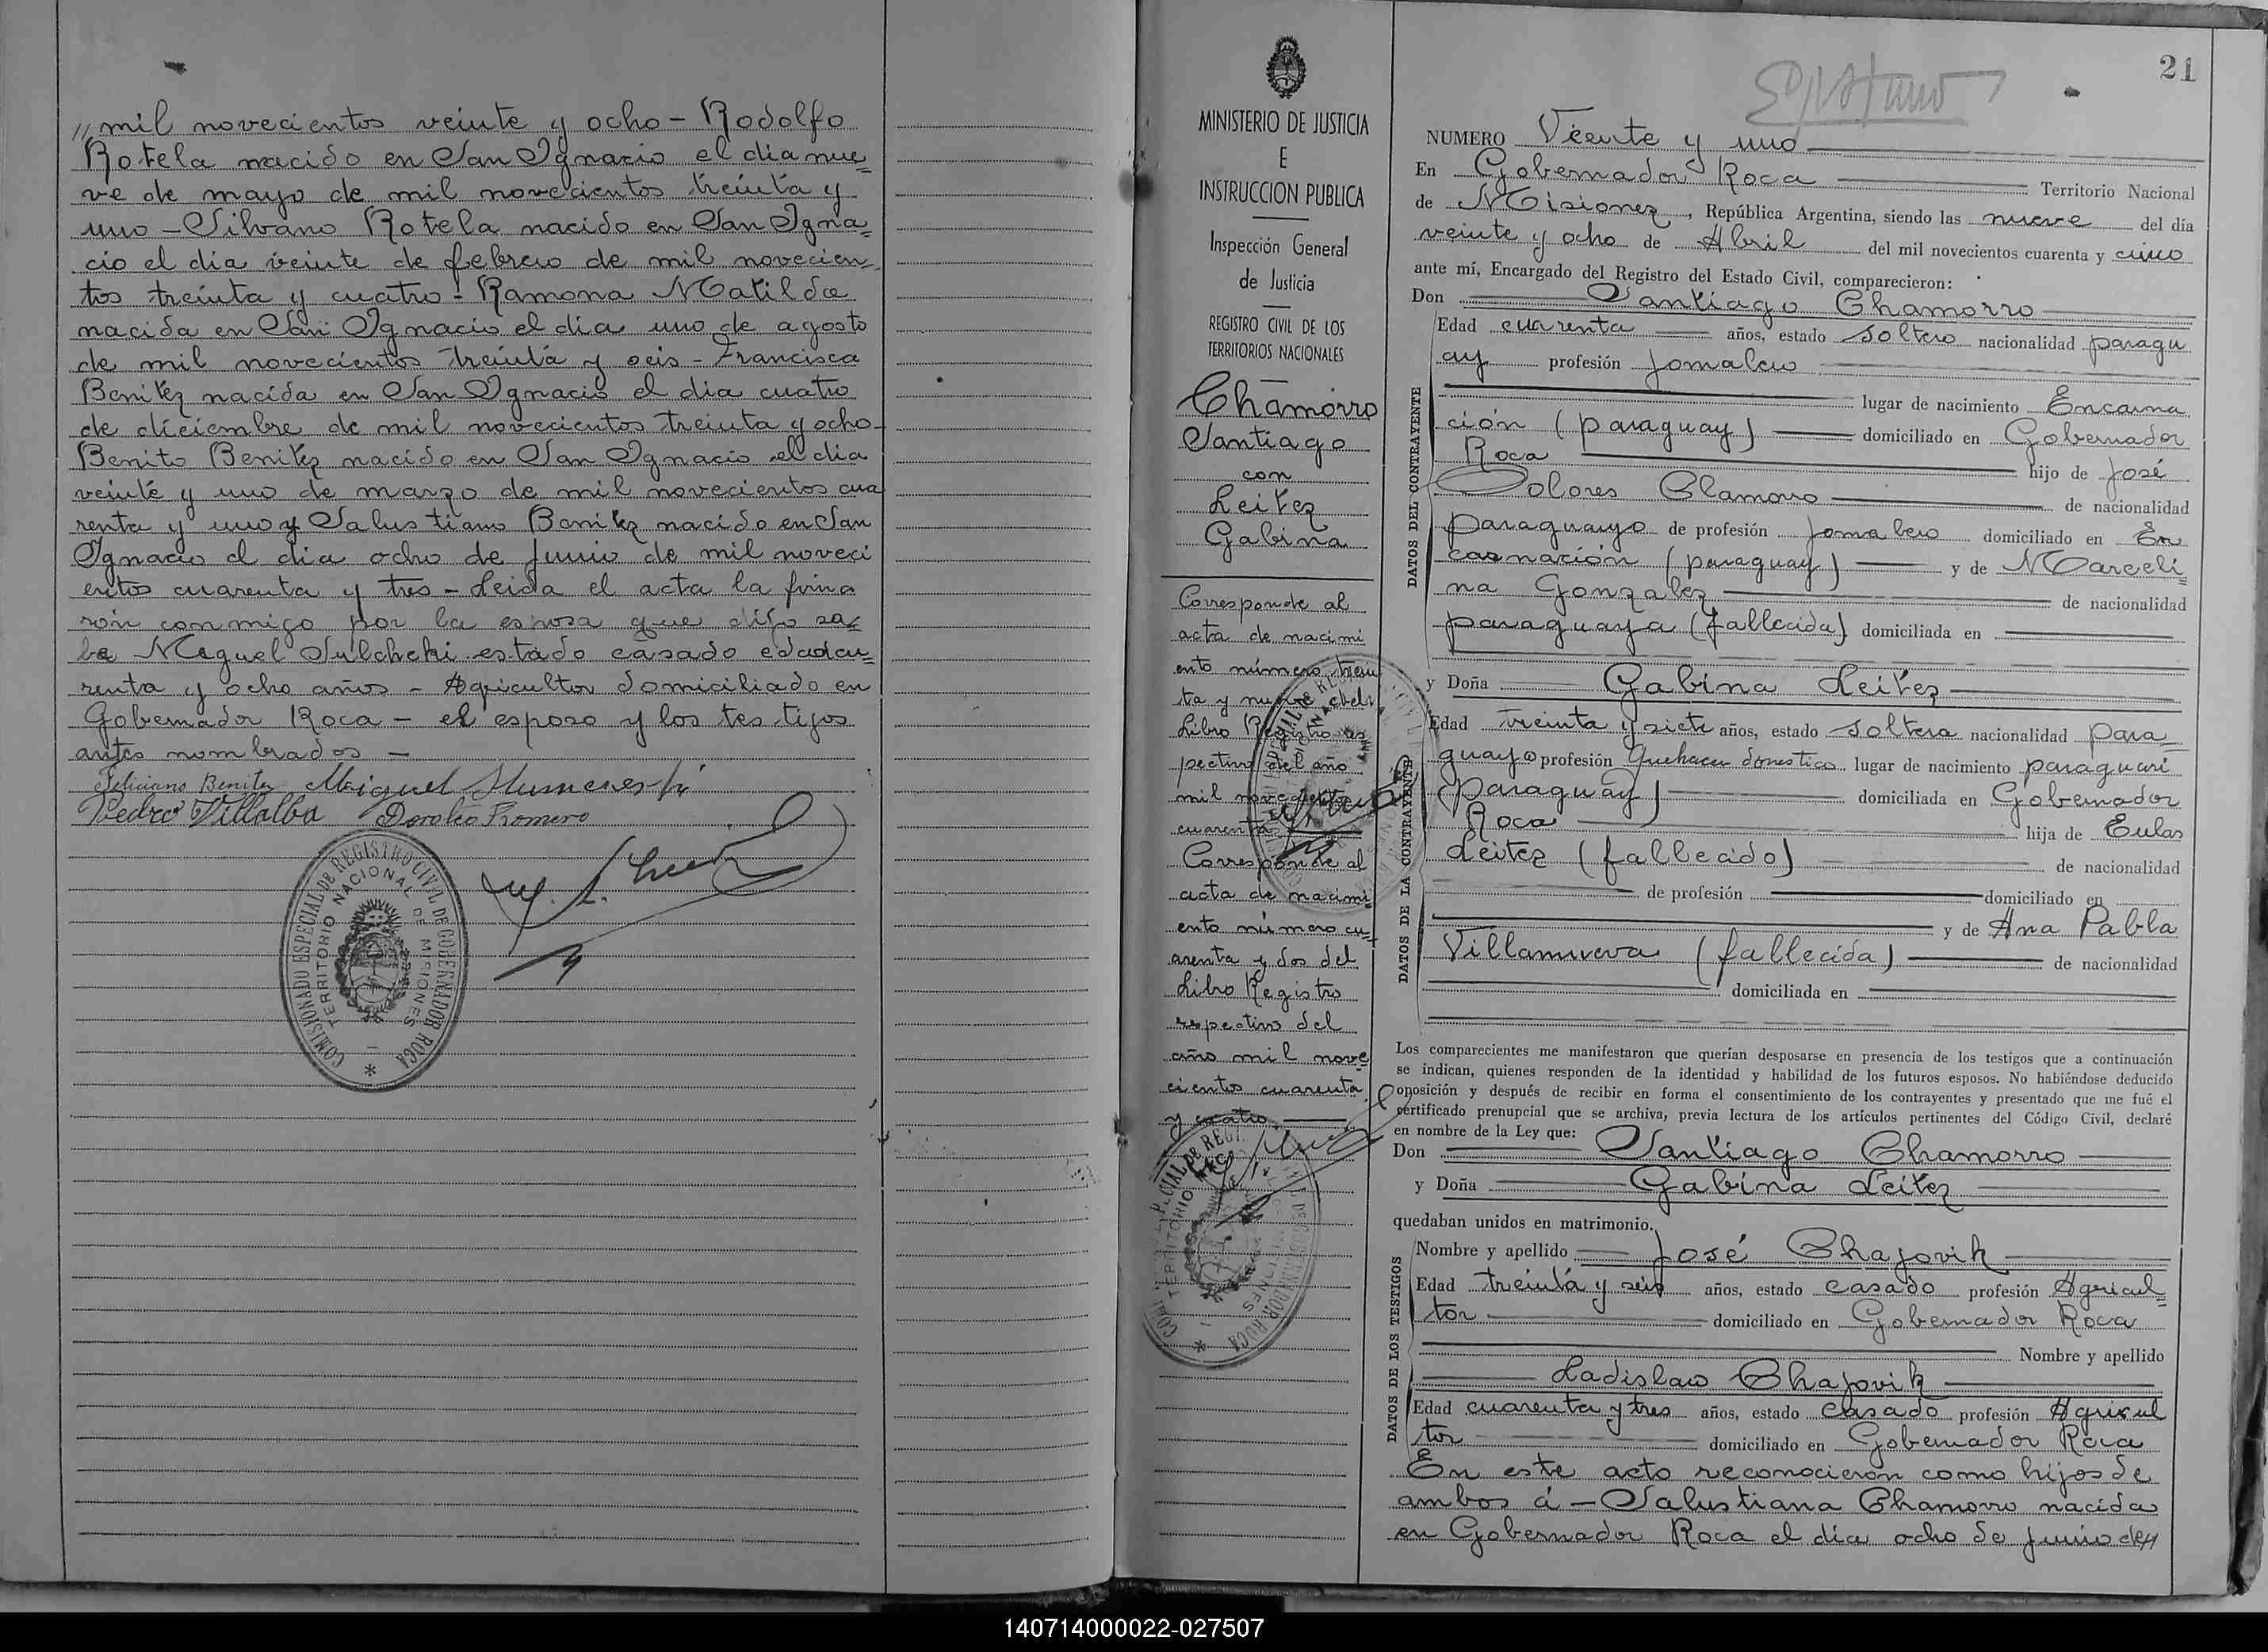 // mil novecientos veinte y ocho - Rodolfo
Rotela nacido en San Ignacio el dia nue=
ve de mayo de mil novecientos treinta y
uno - Silvano Rotela nacido en San Igna=
cio el dia veinte de febrero de mil novecien=
tos treinta y cuatro - Ramona Matilde
nacida en San Ignacio el dia uno de agosto
de mil novecientos treinta y seis - Francisca
Benitez nacida en San Ignacio el dia cuatro
de diciembre de mil novecientos treinta y ocho -
Benito Benitez nacido en San Ignacio el dia
veinte y uno de marzo de mil novecientos cua
renta y uno y Salustiano Benitez nacido en San
Ignacio el dia ocho de Junio de mil noveci
entos cuarenta y tres - Leida el acta la firma
rón conmigo por la esposa que dijo sa=
be Miguel estado casado edad cua=
renta y ocho años - Agricultor domiciliado en
Gobernador Roca - el esposo y los testigos
antes nombrados -
Feliciano Benitez Miguel
Pedro Villalba Doroleo Romero
COMISIONADO ESPECIAL DE REGISTRO CIVIL DE GOBERNADOR ROCA
TERRITORIO NACIONAL DE MISIONES
MINISTERIO DE JUSTICIA
E
INSTRUCCION PUBLICA
Inspección General
de Justicia
REGISTRO CIVIL DE LOS
TERRITORIOS NACIONALES
Chamorro
Santiago
con
Leitez
Gabina
Corresponde al
acta de nacimi
ento número trein
ta y nueve del
Libro Registro res
pectivo del año
mil novecientos
cuarenta
Corresponde al
acta de nacimi
ento número cu=
arenta y dos del
Libro Registro
respectivo del
año mil nove
cientos cuarenta
y cuatro
21
NUMERO Veinte y uno
En Gobernador Roca Territorio Nacional
de Misiones, República Argentina, siendo las nueve del día
veinte y ocho de Abril del mil novecientos cuarenta y cinco
ante mí, Encargado del Registro del Estado Civil, comparecieron:
Don Santiago Chamorro
DATOS DEL CONTRAYENTE
Edad cuarenta años, estado soltero nacionalidad paragu
ay profesión Jornalero
lugar de nacimiento Encarna
ción (paraguay) domiciliado en Gobernador
Roca hijo de José
Dolores Chamorro de nacionalidad
paraguayo de profesión Jornalero domiciliado en En
carnación (paraguay) y de Marceli=
na Gonzalez de nacionalidad
paraguaya (fallecida) domiciliada en
y Doña Gabina Leitez
DATOS DE LA CONTRAYENTE
Edad treinta y siete años, estado soltera nacionalidad para=
guaya profesión Quehacer domestico lugar de nacimiento paraguari
(Paraguay) domiciliada en Gobernador
Roca hija de Eulas
Leitez (fallecido) de nacionalidad
de profesión domiciliado en
y de Ana Pabla
Villanueva (fallecida) de nacionalidad
domiciliada en
Los comparecientes me manifestaron que querían desposarse en presencia de los testigos que a continuación
se indican, quienes responden de la identidad y habilidad de los futuros esposos. No habiéndose deducido
oposición y después de recibir en forma el consentimiento de los contrayentes y presentado que me fué el
certificado prenupcial que se archiva, previa lectura de los artículos pertinentes del Código Civil, declaré
en nombre de la Ley que:
Don Santiago Chamorro
y Doña Gabina Leitez
quedaban unidos en matrimonio.
DATOS DE LOS TESTIGOS
Nombre y apellido José Chajovik
Edad treinta y seis años, estado casado profesión Agricul=
tor domiciliado en Gobernador Roca
Nombre y apellido
Ladislao Chajovik
Edad cuarenta y tres años, estado casado profesión Agricul
tor domiciliado en Gobernador Roca
En este acto reconocieron como hijos de
ambos á - Salustiana Chamorro nacida
en Gobernador Roca el dia ocho de Junio de//
140714000022-027507